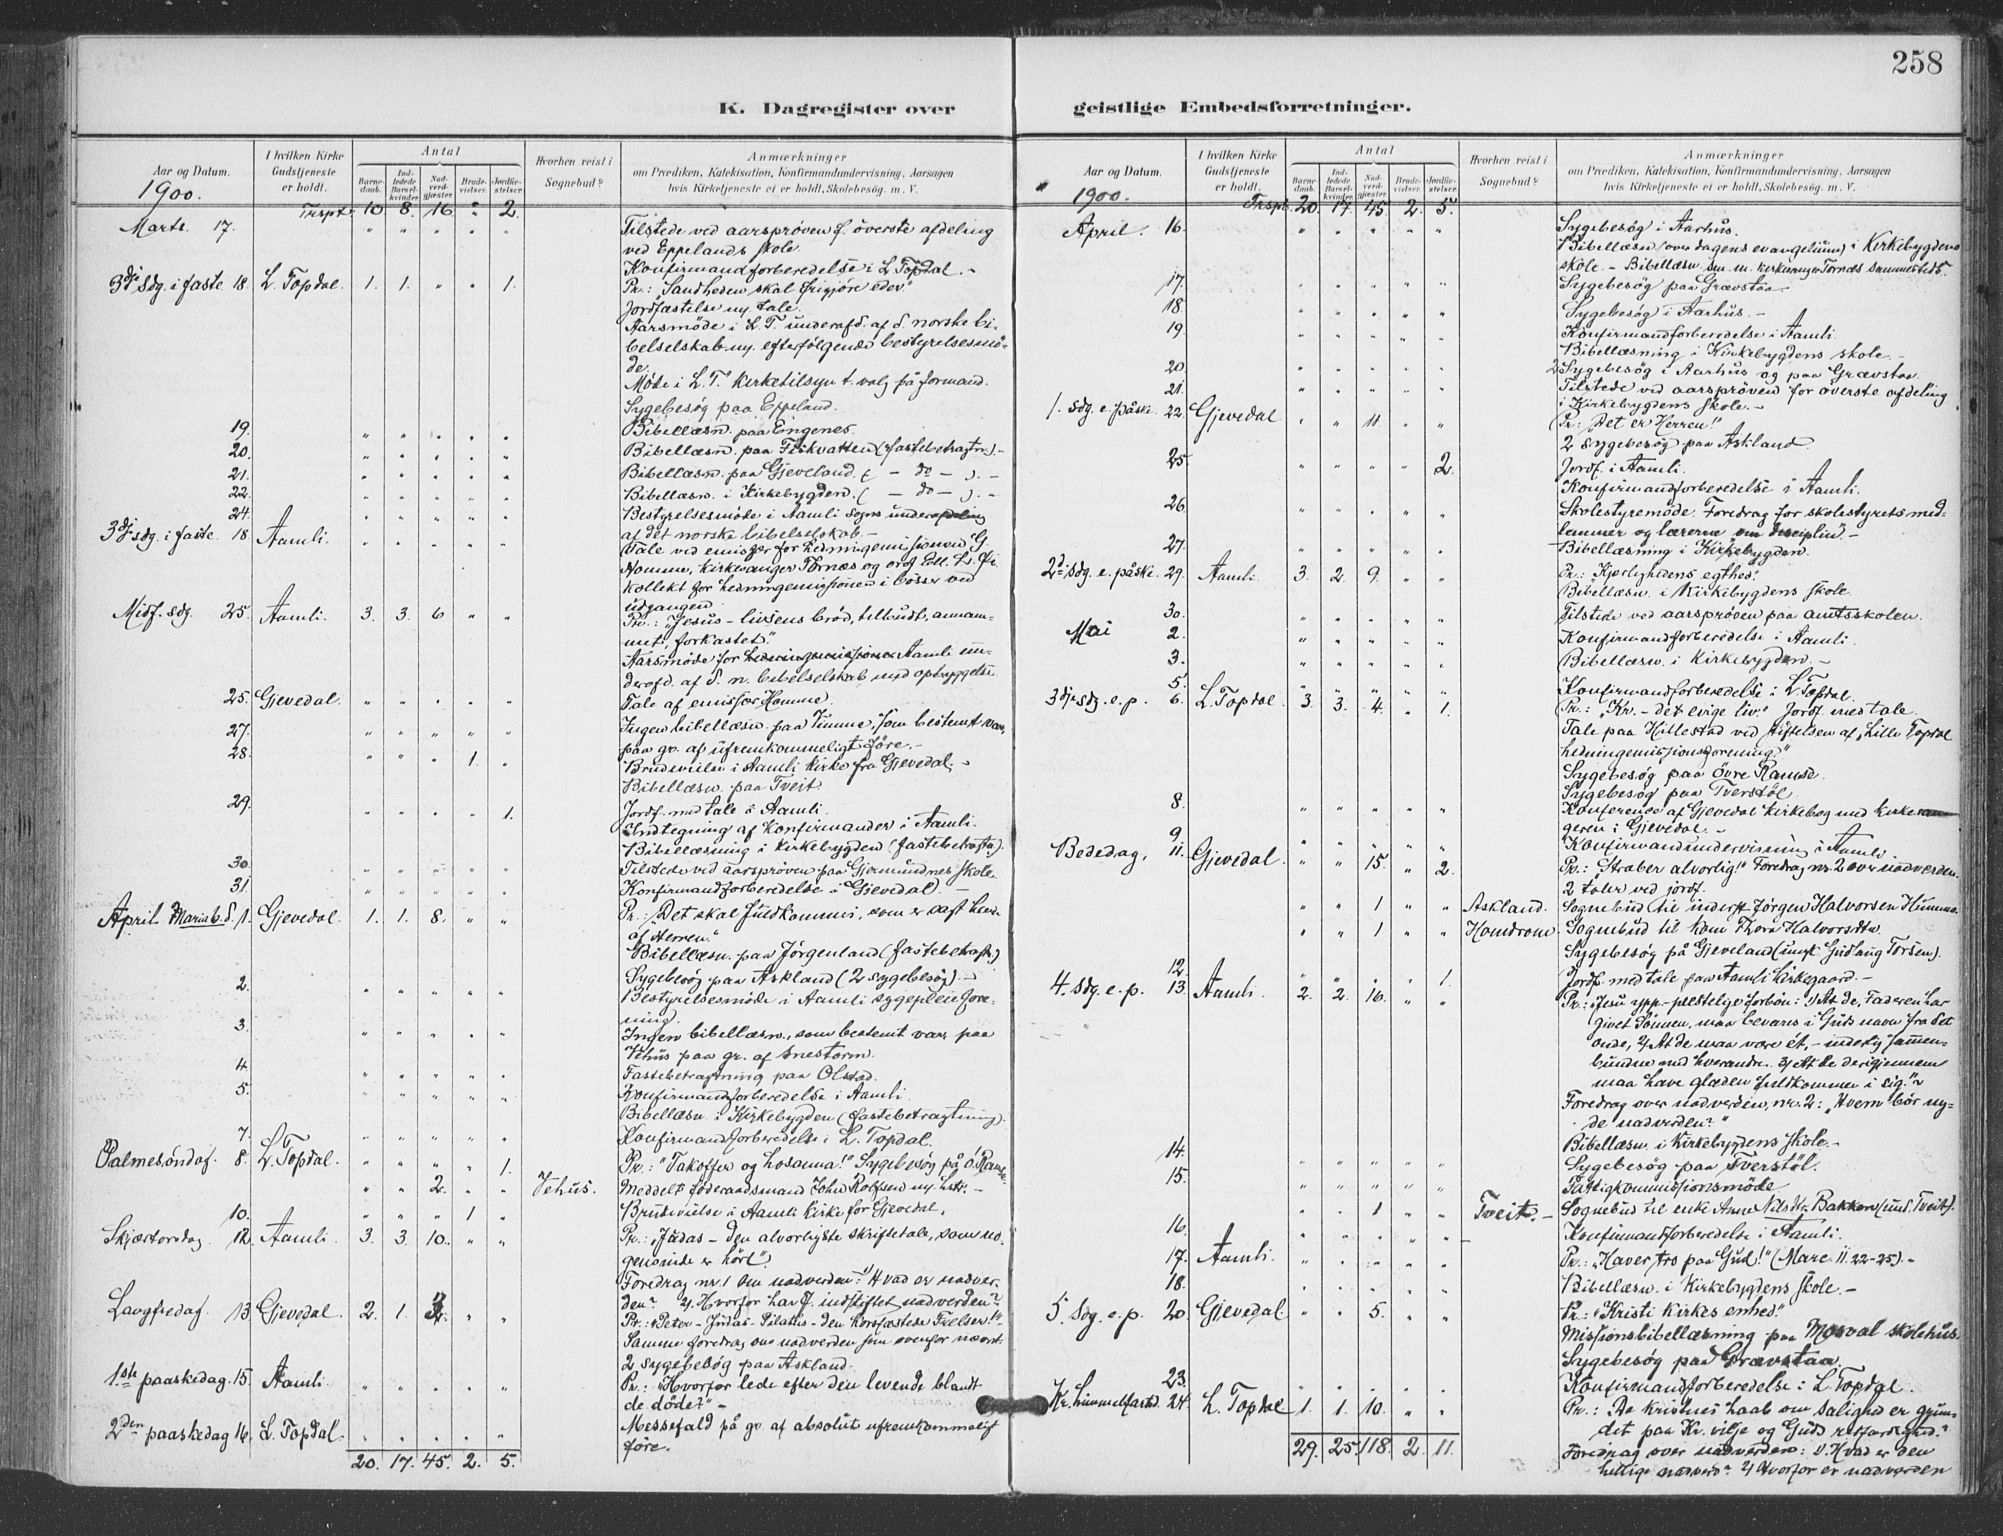 258
K. Dagregister over
geistlige Embedsforretninger.
Aar og Datum.
1900.
I hvilken Kirke Gudstjeneste er holdt.
Antal
Barnedaab. Indledede Barselkvinder. Nadverdgjæster. Brudevielser. Jordfæstelser.
Hvorhen reist i Sognebud?
Anmærkninger
om Prædiken, Katekisation, Konfirmandundervisning, Aarsagen
hvis Kirketjeneste ei er holdt, Skolebesøg. m. V.
Trspt. 10 8. 16 " 2.
Marts 17. " " " " " Tilstede ved aarsprøven f. överste afdeling
ved Eppelands skole
Konfirmandforberedelse i L. Topdal. -
3dje sdg. i faste 18. L. Topdal. 1. 1. " " 1. Pr.: "Sandheden skal frigjøre eder"
Jordfæstelse m/ tale.
Aarsmöde i L. T. underafd. af d. norske bi-
belselskab m/ efterfølgende bestyrelsesmö-
de.
Møde i L. T. kirketilsyn t. valg på formand.
Sygebesög paa Eppeland.
19. " " " " " Bibellæsn. paa Engenes.
20. " " " " " Bibellæsn. paa Fiskvatten (fastebetragtn.) -
21. " " " " " Bibellæsn. paa Gjeveland. ( - do - ). -
22. " " " " " Bibellæsn. i Kirkebygden. ( - do - ). -
24. " " " " " Bestyrelsesmöde i Aamli sogns underafdeling
af det norske bibelselskab. -
3dje sdg. i faste 18. Aamli. " " " " " Tale ved emissær for hedningemissionen G.
Homme, kirkesanger Tornæs og
kollekt for hedningemissionen i bösser ved
udgangen
Midf. sdg. 25. Aamli. 3. 3. 6 " " Pr.: "Jesus - livsens bröd, tilbudt, annam-
met, forkastet."
Aarsmöde for Aamli un-
derafd. af d. n. bibelselskab med opbyggelse
25. Gjevedal. " " " " " Tale af emissær Homme.
27. " " " " " Ingen bibellæsn. paa Vimme, som bestemt var,
paa gr. af ufremkommeligt före. -
28. " " " 1. " Brudevielse i Aamli kirke fra Gjevedal. -
Bibellæsn. paa Tveit.
29. " " " " 1. Jordf. med tale i Aamli.
Indtegning af konfirmander i Aamli.
Bibellæsning i Kirkebygden (fastebetragtn.)
30. " " " " " Tilstede ved aarsprøven paa Gjermundnes skole.
31. " " " " " Konfirmandforberedelse i Gjevedal. -
April Maria b. d. 1. Gjevedal. 1. 1. 8. " " Pr.: "Det skal fuldkommes, som er sagt hende
af Herren."
Bibellæsn. paa Jörgenland (fastebetragtn.)
Sygebesög paa Askland (2 sygebesög). -
2. " " " " " Bestyrelsesmöde i Aamli sygepleiefore-
ning.
3. " " " " " Ingen bibellæsn., som bestemt var, paa
Vehus paa gr. af snestorm.
4. " " " " " Fastebetragtning paa Olstad.
5. " " " " " Konfirmandforberedelse i Aamli.
Bibellæsn. i Kirkebygden (fastebetragtning)
7. " " " " " Konfirmandforberedelse i L. Topdal.
Palmesöndag. 8. L. Topdal. " " " " 1. Pr.: "Takoffer og hosanna!" Sygebesög på ö. Ramse
" " 2. " " Vehus. Meddelt föderaadsmand John Rolfsen -
10. " " " 1 " Brudevielse i Aamli kirke for Gjevedal.
Skjærtorsdag 12. Aamli. 3. 3 10. " " Pr.: "Judas - den alvorligste skriftetale, som no-
gensinde er hört".
Foredrag nr. 1 om nadverden: 1/ Hvad er nadver-
den? 2/ Hvorfor har J. indstiftet nadverden?
Langfredag. 13 Gjevedal. 2. 1. 3. " " Pr.: "Peter - Judas - Pilatus - den korsfæstede Frelser!" -
Samme foredrag om nadverden som ovenfor nævnt.
2 sygebesög paa Askland.
1ste paaskedag. 15 Aamli. " " " " " Pr.: "Hvorfor lede efter den levende blandt
de döde?" -
2den paaskedag 16. L. Topdal. " " " " " Messefald på gr. af absolut ufremkommeligt
före.
20. 17. 45. 2. 5.
Aar og Datum.
1900.
I hvilken Kirke Gudstjeneste er holdt.
Antal
Barnedaab. Indledede Barselkvinder. Nadverdgjæster. Brudevielser. Jordfæstelser.
Hvorhen reist i Sognebud?
Anmærkninger
om Prædiken, Katekisation, Konfirmandundervisning, Aarsagen
hvis Kirketjeneste ei er holdt, Skolebesøg. m. V.
Trspt. 20. 17. 45. 2. 5.
April. 16. " " " " " Sygebesög i Aarhus.
Bibellæsn. (over dagens evangelium) i Kirkebygdens
skole. - Bibellæsn. sm. m. kirkesanger Tornæs sammesteds.
17. " " " " " Sygebesög paa Grævstaa.
18. " " " " " Sygebesög i Aarhus. -
19. " " " " " Konfirmandforberedelse i Aamli.
Bibellæsning i Kirkebygdens skole. -
20. " " " " " 2 Sygebesög i Aarhus og paa Grævstaa.
21. " " " " " Tilstede ved aarsprøven for överste afdeling
i Kirkebygdens skole. -
1. sdg. e. påske. 22. Gjevedal " " 11. " " Pr.: "Det er Herren!"
2 sygebesög paa Askland.
25. " " " " 2. Jordf. i Aamli.
Konfirmandforberedelse i Aamli.
26. " " " " " Skolestyremöde. Foredrag for skolestyrets med-
lemmer og lærerne om disciplin. -
27. " " " " " Bibellæsning i Kirkebygden.
2d. sdg. e. påske. 29. Aamli. 3. 2. 9. " " Pr.: "Kjærlighedens egthed."
Bibellæsn. i Kirkebygdens skole.
30. " " " " " Tilstede ved aarsprøven paa amtsskolen.
Mai 2. " " " " " Konfirmandforberedelse i Aamli.
3. " " " " " Bibellæsn. i Kirkebygden. -
5. " " " " " Konfirmandforberedelse i L. Topdal.
3dje sdg. e. p. 6. L. Topdal. 3. 3. 4. " 1. Pr.: "Kr. - det evige liv." Jordf. med tale.
Tale paa Hillestad ved stiftelsen af "Lille Topdal
hedningemissionsforening"
Sygebesög paa övre Ramse.
Sygebesög paa Tverstöl.
8. " " " " " Konference af Gjevedal kirkebog med kirkesan-
geren i Gjevedal. -
9. " " " " " Konfirmandundervisning i Aamli.
Bededag. 11. Gjevedal. " " 15. " 2. Pr.: "Stræber alvorlig!" Foredrag nr. 2 over nadverden.
2 taler ved jordf.
" " 1 " " Askland. Sognebud til inderst Jørgen Halvorsen Humme.
" " 1 " " Homdrom. Sognebud til kone Thora Halvorsdtr.
Sygebesög på Gjeveland (Gudlaug Torsen).
12. " " " " 1. Jordf. med tale paa Aamli kirkegaard. -
4. sdg. e. p. 13. Aamli. 2. 2. 16. " " Pr.: "Jesu ypp.-prestelige forbön: 1/ At de, Faderen har
givet Sönnen, maa bevares i Guds navn fra det
onde, 2/ At de maa være ét, - inderlig sammen-
bundne med hverandre. 3/ At de derigjennem
maa have glæden fuldkommen i sig."
Foredrag over nadverden, nr. 2: "Hvem bör ny-
de nadverden?"
14. " " " " " Bibellæsn. i Kirkebygdens skole. -
Sygebesög paa Tverstöl.
15. " " " " " Fattigkommissionsmöde
" " 1 " " Tveit. - Sognebud til enke Anne Nilsdtr. Bakken (und. Tveit).
16. " " " " " Konfirmandforberedelse i Aamli.
17. Aamli. " " " " " Pr.: "Haver tro paa Gud!" (Marc. 11. 22-25). -
18. " " " " " Bibellæsn. i Kirkebygdens skole. -
5. sdg. e. p. 20 Gjevedal " " 5. " " Pr.: "Kristi kirkes enhed."
Missionsbibellæsning paa Mosval skolehus.
Sygebesög paa Grævstaa.
23. " " " " " Konfirmandforberedelse i L. Topdal.
Kr. himmelfartsd. 24. L. Topdal 1. 1. 10. " " Pr.: De kristnes haab om salighed er gjem-
det paa Kr. vilje og Guds retfærdighed."
29. 25. 118. 2. 11. Foredrag over nadverden: 1/ Hvad er den
hellige nadverd? 2/ Hvorfor er nadverden